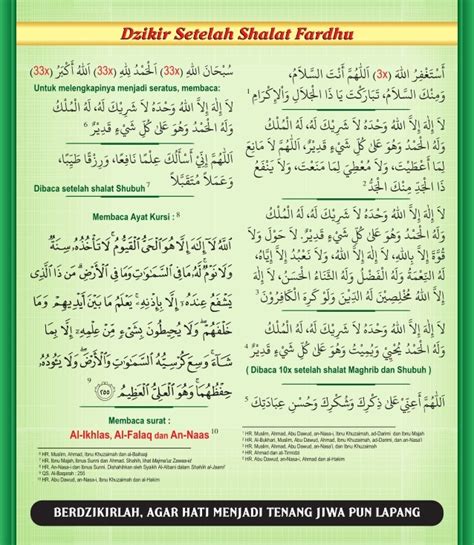 Dzikir Setelah Shalat Fardhu
أَسْتَغْفِرُ اللهَ (3x) اَللَّهُمَّ أَنْتَ السَّلاَمُ،
وَمِنْكَ السَّلاَمُ، تَبَارَكْتَ يَا ذَا الْجَلاَلِ وَاْلإِكْرَامِ 1
لاَ إِلَهَ إِلاَّ اللهُ وَحْدَهُ لاَ شَرِيْكَ لَهُ، لَهُ الْمُلْكُ
وَلَهُ الْحَمْدُ وَهُوَ عَلَى كُلِّ شَيْءٍ قَدِيْرٌ، اَللَّهُمَّ لاَ مَانِعَ
لِمَا أَعْطَيْتَ، وَلاَ مُعْطِيَ لِمَا مَنَعْتَ، وَلاَ يَنْفَعُ
ذَا الْجَدِّ مِنْكَ الْجَدُّ 2
لاَ إِلَهَ إِلاَّ اللهُ وَحْدَهُ لاَ شَرِيْكَ لَهُ، لَهُ الْمُلْكُ
وَلَهُ الْحَمْدُ وَهُوَ عَلَى كُلِّ شَيْءٍ قَدِيْرٌ. لاَ حَوْلَ
وَلاَ قُوَّةَ إِلاَّ بِاللهِ، لاَ إِلَهَ إِلاَّ اللهُ، وَلاَ نَعْبُدُ إِلاَّ إِيَّاهُ،
لَهُ النِّعْمَةُ وَلَهُ الْفَضْلُ وَلَهُ الثَّنَاءُ الْحَسَنُ، لاَ إِلَهَ
إِلاَّ اللهُ مُخْلِصِيْنَ لَهُ الدِّيْنَ وَلَوْ كَرِهَ الْكَافِرُوْنَ 3
لاَ إِلَهَ إِلاَّ اللهُ وَحْدَهُ لاَ شَرِيْكَ لَهُ، لَهُ الْمُلْكُ وَلَهُ
الْحَمْدُ يُحْيِيْ وَيُمِيْتُ وَهُوَ عَلَى كُلِّ شَيْءٍ قَدِيْرٌ 4
( Dibaca 10x setelah shalat Maghrib dan Shubuh )
اَللَّهُمَّ أَعِنِّيْ عَلَى ذِكْرِكَ وَشُكْرِكَ وَحُسْنِ عِبَادَتِكَ 5
1 HR. Muslim, Ahmad, Abu Dawud, an-Nasa-i, Ibnu Khuzaimah, ad-Darimi dan Ibnu Majah
2 HR. Al-Bukhari, Muslim, Abu Dawud, Ahmad, Ibnu Khuzaimah, ad-Darimi, dan an-Nasa'i
3 HR. Muslim, Ahmad, Abu Dawud, an-Nasa'i, Ibnu Khuzaimah
4 HR. Ahmad dan at-Tirmidzi
5 HR. Abu Dawud, an-Nasa-i, Ahmad, Ibnu Khuzaimah dan al-Hakim
سُبْحَانَ اللهِ (33x) اَلْحَمْدُ لِلَّهِ (33x) اَللهُ أَكْبَرُ (33x)
Untuk melengkapinya menjadi seratus, membaca:
لاَ إِلَهَ إِلاَّ اللهُ وَحْدَهُ لاَ شَرِيْكَ لَهُ، لَهُ الْمُلْكُ
وَلَهُ الْحَمْدُ وَهُوَ عَلَى كُلِّ شَيْءٍ قَدِيْرٌ 6
اَللَّهُمَّ إِنِّيْ أَسْأَلُكَ عِلْمًا نَافِعًا، وَرِزْقًا طَيِّبًا،
وَعَمَلاً مُتَقَبَّلاً
Dibaca setelah shalat Shubuh 7
Membaca Ayat Kursi : 8
اللَّهُ لَا إِلَهَ إِلَّا هُوَ الْحَيُّ الْقَيُّومُ لَا تَأْخُذُهُ سِنَةٌ
وَلَا نَوْمٌ لَهُ مَا فِي السَّمَاوَاتِ وَمَا فِي الْأَرْضِ مَنْ ذَا الَّذِي
يَشْفَعُ عِنْدَهُ إِلَّا بِإِذْنِهِ يَعْلَمُ مَا بَيْنَ أَيْدِيهِمْ وَمَا
خَلْفَهُمْ وَلَا يُحِيطُونَ بِشَيْءٍ مِنْ عِلْمِهِ إِلَّا بِمَا
شَاءَ وَسِعَ كُرْسِيُّهُ السَّمَاوَاتِ وَالْأَرْضَ وَلَا يَئُودُهُ
حِفْظُهُمَا وَهُوَ الْعَلِيُّ الْعَظِيمُ ٢٥٥ 9
Membaca surat :
Al-Ikhlas, Al-Falaq dan An-Naas 10
6 HR. Muslim, Ahmad, Ibnu Khuzaimah dan al-Baihaqi
7 HR. Ibnu Majah, Ibnus Sunni dan Ahmad. Shahih, lihat Majma'uz Zawa-id
8 HR. An-Nasa-i dan Ibnus Sunni. Dishahihkan oleh Syaikh Al-Albani dalam Shahih al-Jaami'
9 QS. Al-Baqarah : 255
10 HR. Abu Dawud, an-Nasa-i, Ibnu Khuzaimah dan al-Hakim
BERDZIKIRLAH, AGAR HATI MENJADI TENANG JIWA PUN LAPANG